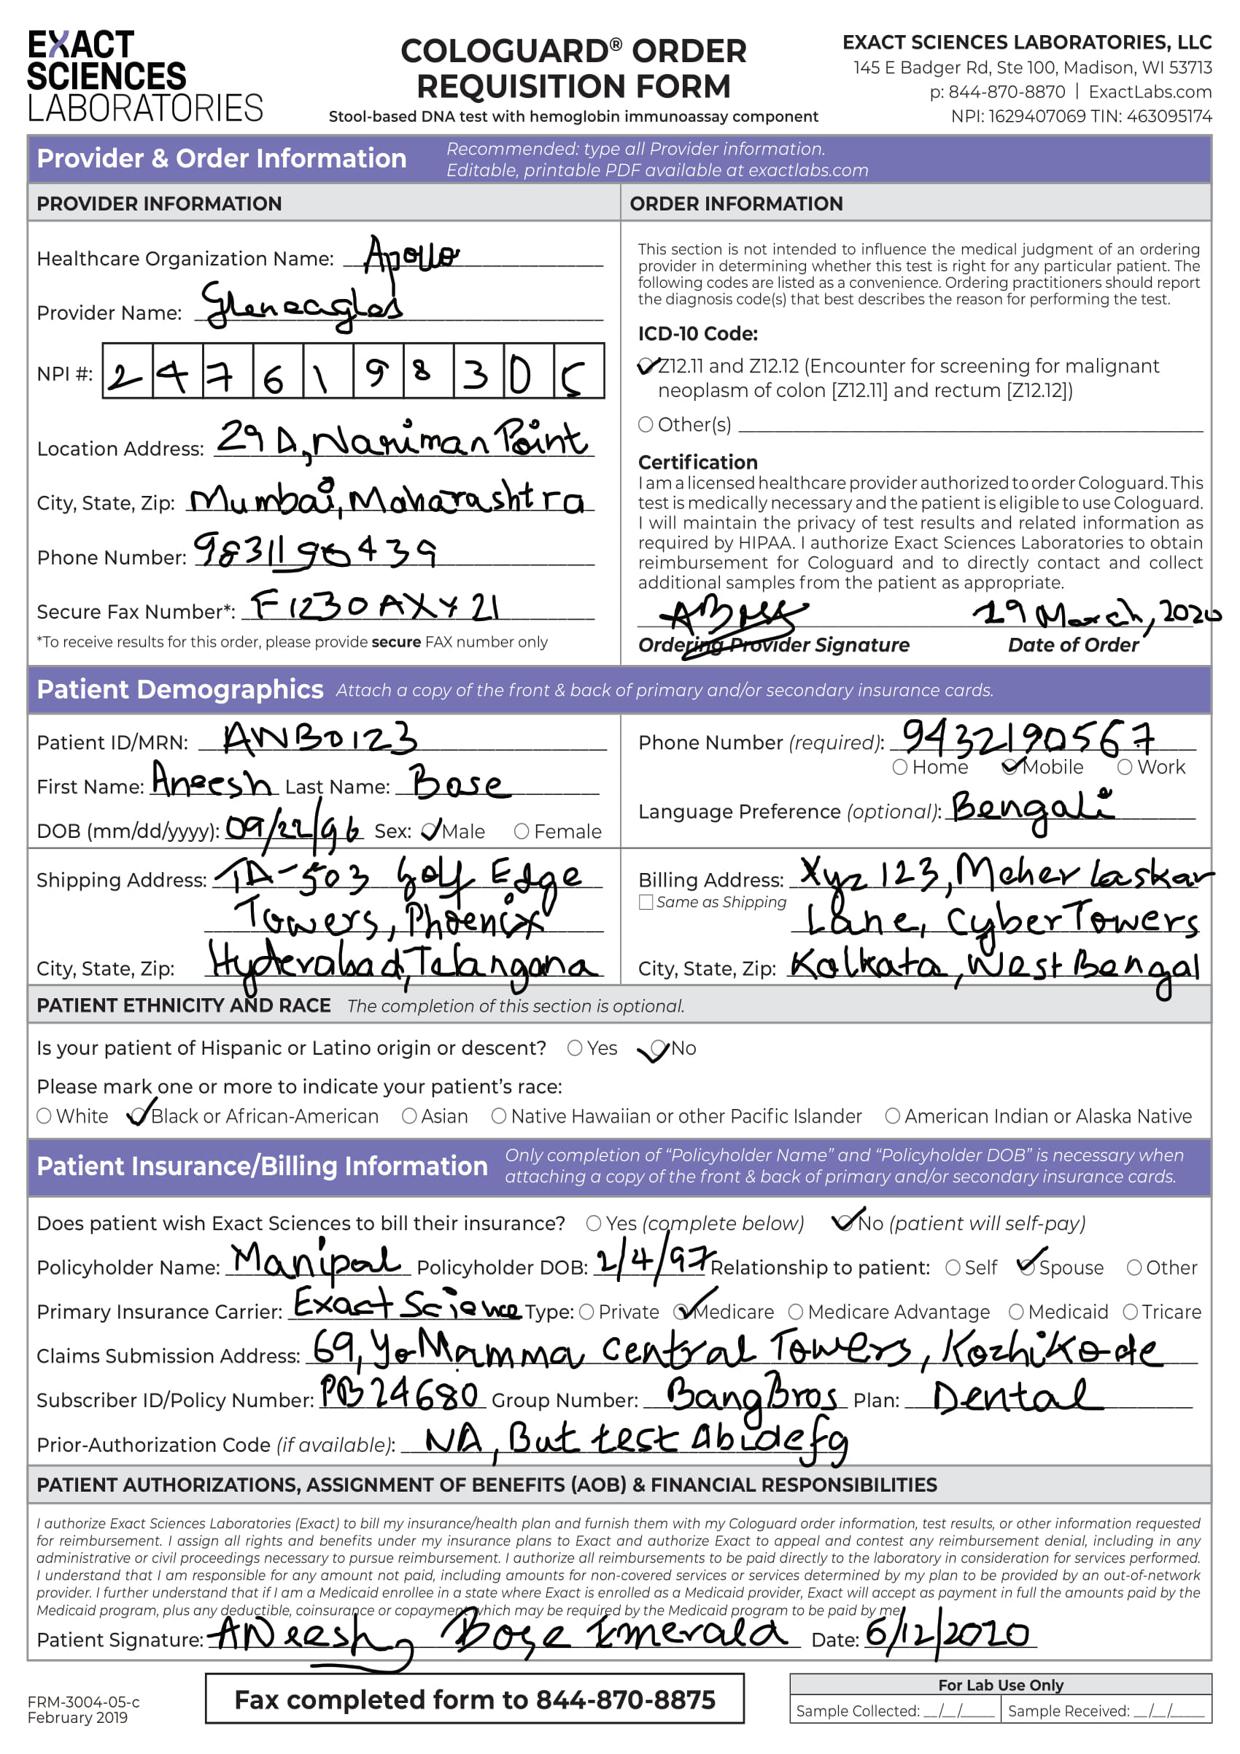 EXACT SCIENCES LABORATORIES
COLOGUARD® ORDER REQUISITION FORM
Stool-based DNA test with hemoglobin immunoassay component
EXACT SCIENCES LABORATORIES, LLC
145 E Badger Rd, Ste 100, Madison, WI 53713
p: 844-870-8870 | ExactLabs.com
NPI: 1629407069 TIN: 463095174
Provider & Order Information
Recommended: type all Provider information.
Editable, printable PDF available at exactlabs.com
PROVIDER INFORMATION
Healthcare Organization Name: Apollo
Provider Name: Gleneagles
NPI #: 2 4 7 6 1 9 8 3 0 5
Location Address: 29 D, Nariman Point
City, State, Zip: Mumbai, Maharashtra
Phone Number: 9831196439
Secure Fax Number*: F1230AXY21
*To receive results for this order, please provide secure FAX number only
ORDER INFORMATION
This section is not intended to influence the medical judgment of an ordering
provider in determining whether this test is right for any particular patient. The
following codes are listed as a convenience. Ordering practitioners should report
the diagnosis code(s) that best describes the reason for performing the test.
ICD-10 Code:
Z12.11 and Z12.12 (Encounter for screening for malignant
neoplasm of colon [Z12.11] and rectum [Z12.12])
Other(s)
Certification
I am a licensed healthcare provider authorized to order Cologuard. This
test is medically necessary and the patient is eligible to use Cologuard.
I will maintain the privacy of test results and related information as
required by HIPAA. I authorize Exact Sciences Laboratories to obtain
reimbursement for Cologuard and to directly contact and collect
additional samples from the patient as appropriate.
29 March, 2020
Ordering Provider Signature Date of Order
Patient Demographics Attach a copy of the front & back of primary and/or secondary insurance cards.
Patient ID/MRN: ANB0123
First Name: Aneesh Last Name: Bose
DOB (mm/dd/yyyy): 09/22/96 Sex: Male Female
Phone Number (required): 9432190567
Home Mobile Work
Language Preference (optional): Bengali
Shipping Address: TA-503 Golf Edge
Towers, Phoenix
City, State, Zip: Hyderabad, Telangana
Billing Address: Xyz 123, Meher Laskar
Same as Shipping
Lane, Cyber Towers
City, State, Zip: Kolkata, West Bengal
PATIENT ETHNICITY AND RACE The completion of this section is optional.
Is your patient of Hispanic or Latino origin or descent? Yes No
Please mark one or more to indicate your patient's race:
White Black or African-American Asian Native Hawaiian or other Pacific Islander American Indian or Alaska Native
Patient Insurance/Billing Information
Only completion of "Policyholder Name" and "Policyholder DOB" is necessary when
attaching a copy of the front & back of primary and/or secondary insurance cards.
Does patient wish Exact Sciences to bill their insurance? Yes (complete below) No (patient will self-pay)
Policyholder Name: Manipal Policyholder DOB: 2/4/97 Relationship to patient: Self Spouse Other
Primary Insurance Carrier: Exact Science Type: Private Medicare Medicare Advantage Medicaid Tricare
Claims Submission Address: 69, Yo Mamma Central Towers, Kozhikode
Subscriber ID/Policy Number: PB24680 Group Number: BangBros Plan: Dental
Prior-Authorization Code (if available): NA, But test Abidefg
PATIENT AUTHORIZATIONS, ASSIGNMENT OF BENEFITS (AOB) & FINANCIAL RESPONSIBILITIES
I authorize Exact Sciences Laboratories (Exact) to bill my insurance/health plan and furnish them with my Cologuard order information, test results, or other information requested
for reimbursement. I assign all rights and benefits under my insurance plans to Exact and authorize Exact to appeal and contest any reimbursement denial, including in any
administrative or civil proceedings necessary to pursue reimbursement. I authorize all reimbursements to be paid directly to the laboratory in consideration for services performed.
I understand that I am responsible for any amount not paid, including amounts for non-covered services or services determined by my plan to be provided by an out-of-network
provider. I further understand that if I am a Medicaid enrollee in a state where Exact is enrolled as a Medicaid provider, Exact will accept as payment in full the amounts paid by the
Medicaid program, plus any deductible, coinsurance or copayment which may be required by the Medicaid program to be paid by me.
Patient Signature: ANeesh Bose Emerald Date: 6/12/2020
FRM-3004-05-c
February 2019
Fax completed form to 844-870-8875
For Lab Use Only
Sample Collected: __/__/____ Sample Received: __/__/____